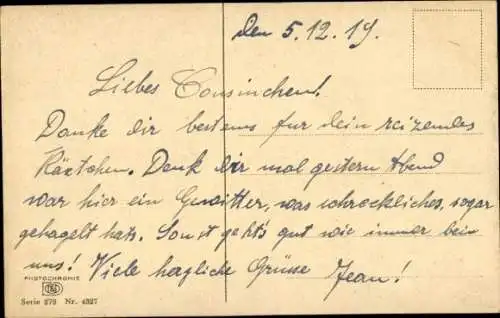 Den 5.12.19.
Liebes Cousinchen!
Danke dir bestens für dein reizendes
Kärtchen. Denk dir mal gestern Abend
war hier ein Gewitter, was schreckliches, sogar
gehagelt hats. Sonst geht's gut wie immer bein
uns! Viele herzliche Grüsse Jean!
PHOTOCHROMIE
Serie 272 Nr. 4327